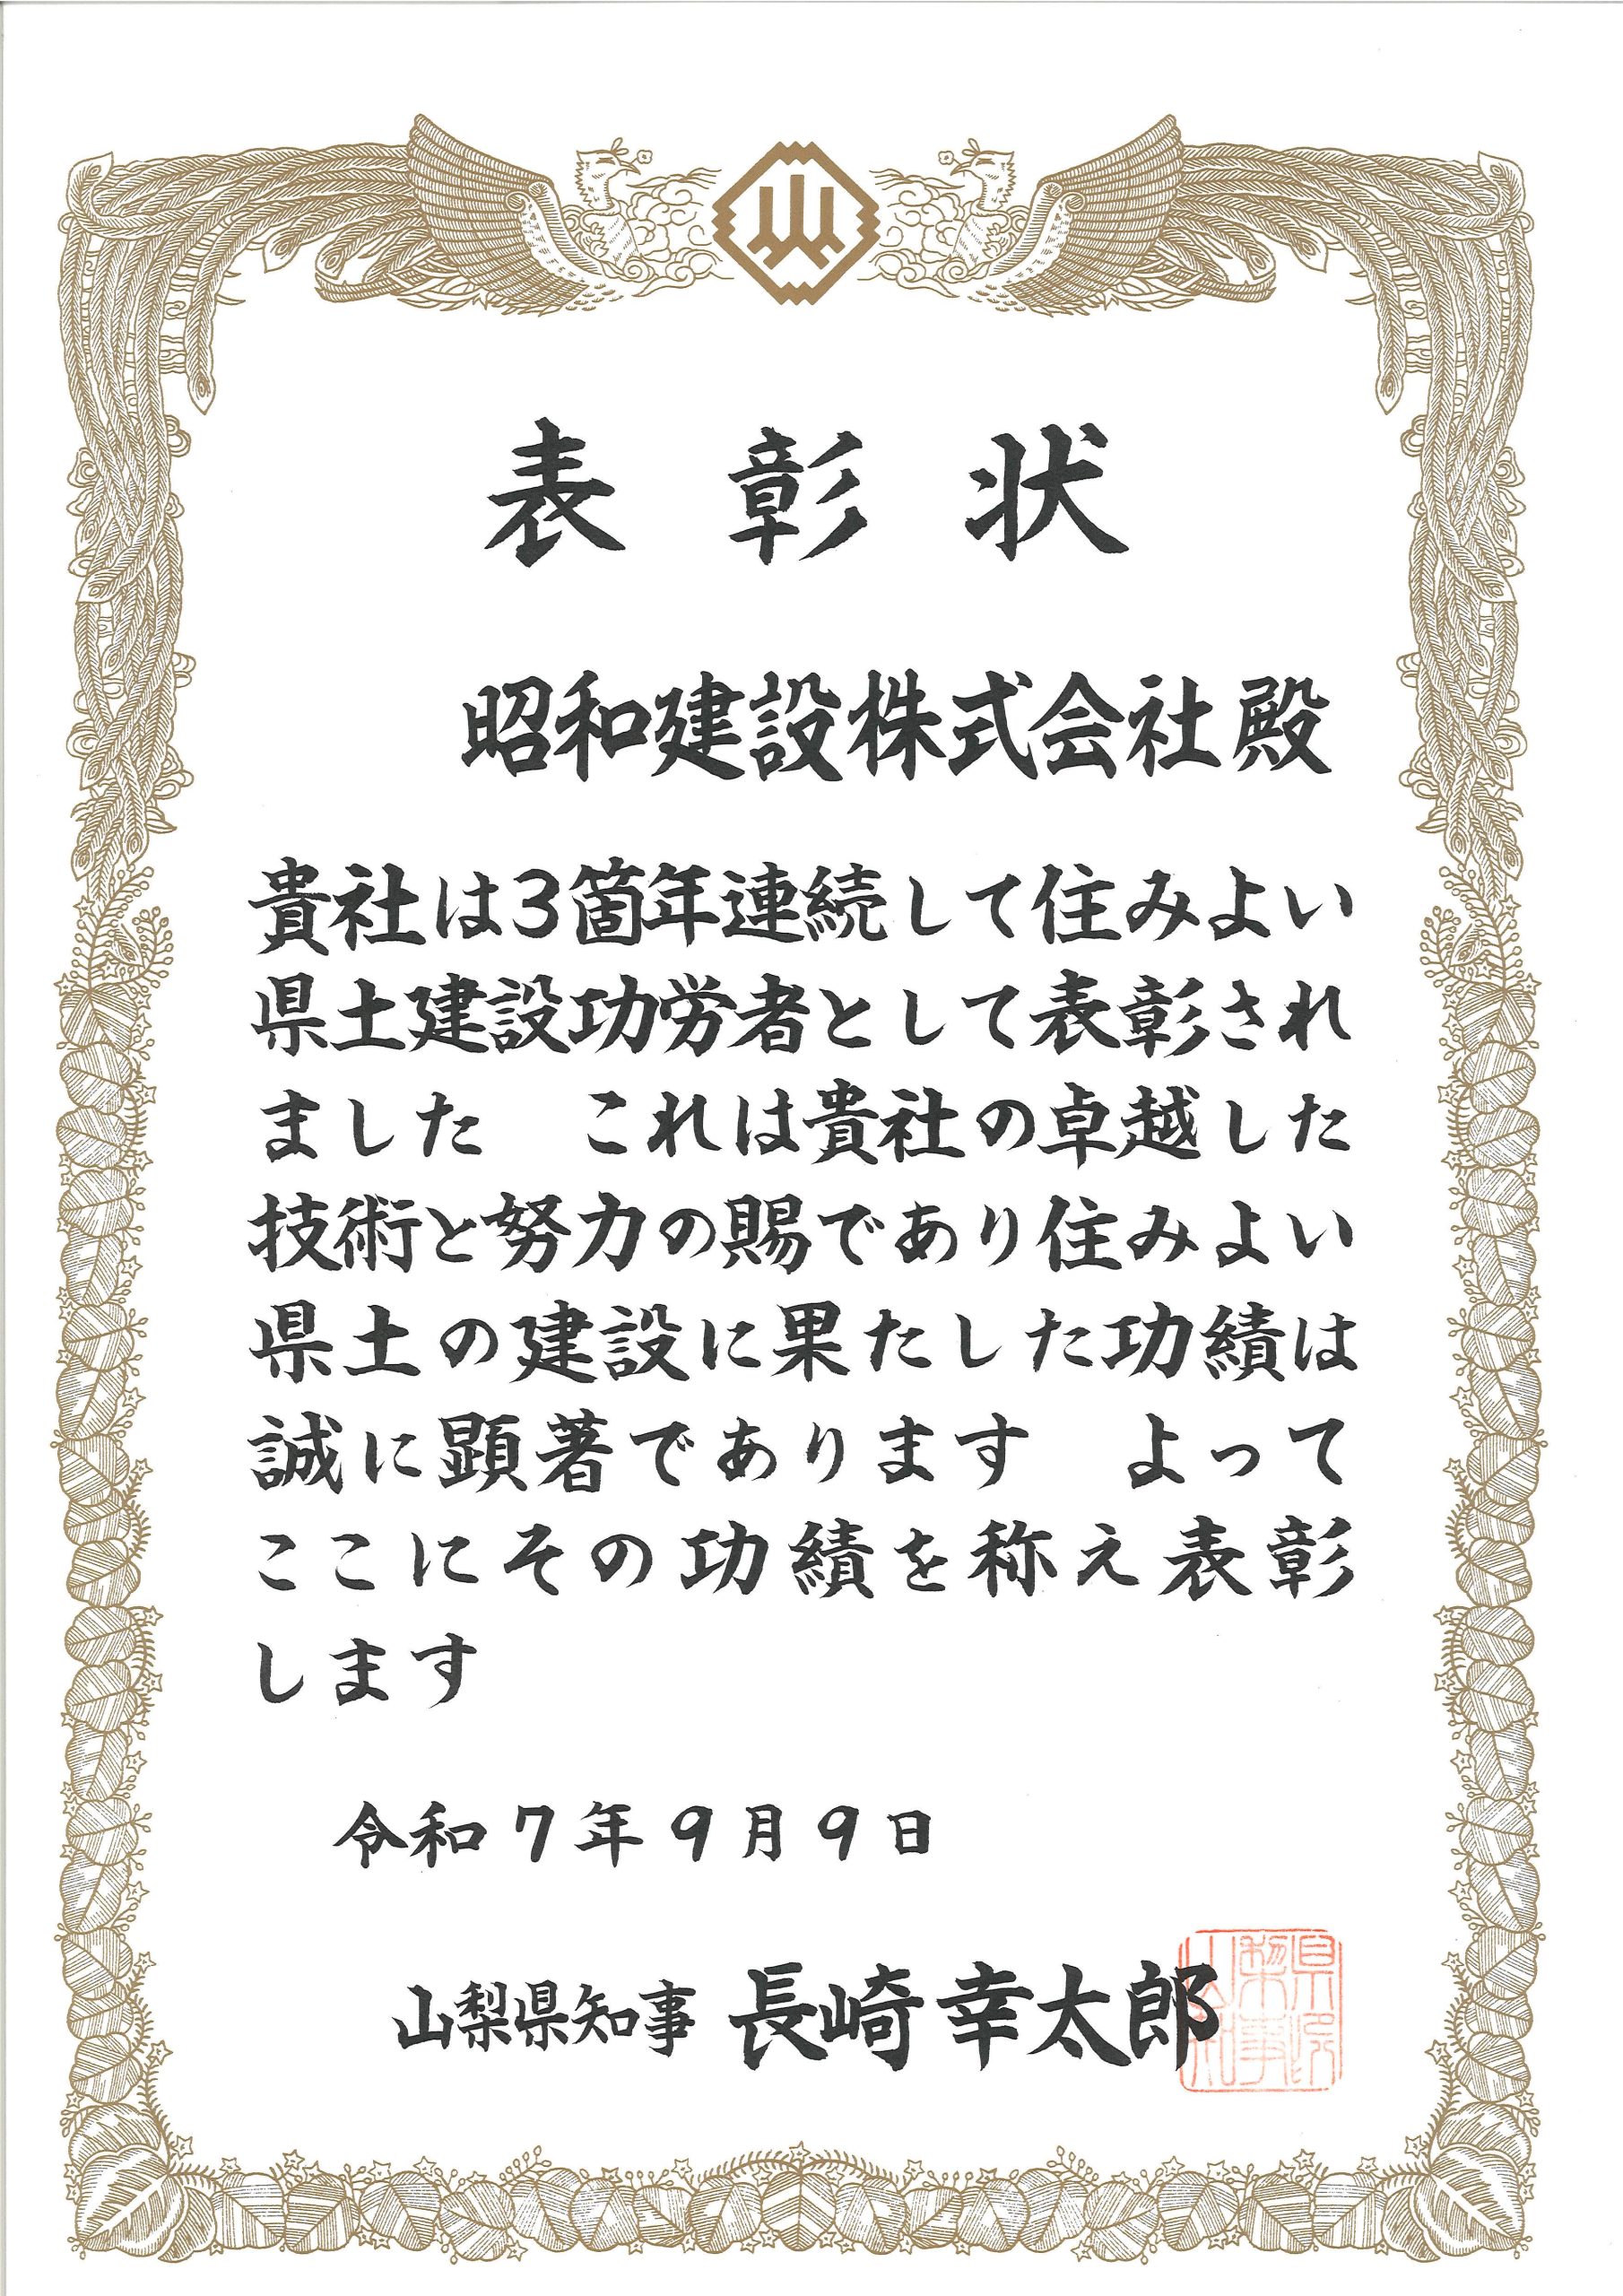 表彰状
昭和建設株式会社殿
貴社は3箇年連続して住みよい
県土建設功労者として表彰され
ました　これは貴社の卓越した
技術と努力の賜であり住みよい
県土の建設に果たした功績は
誠に顕著であります　よって
ここにその功績を称え表彰
します
令和7年9月9日
山梨県知事 長崎幸太郎